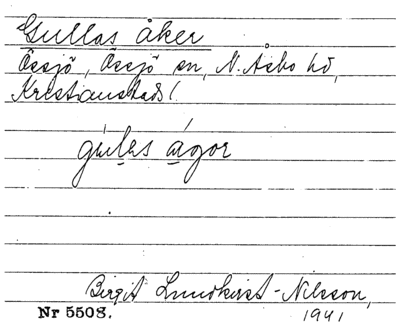 Gullas åker
Össjö, Össjö sn, N. Åsbo hd,
Kristianstads l.
gúlas ágor
Birgit Lundkvist-Nilsson,
Nr 5508. 1941